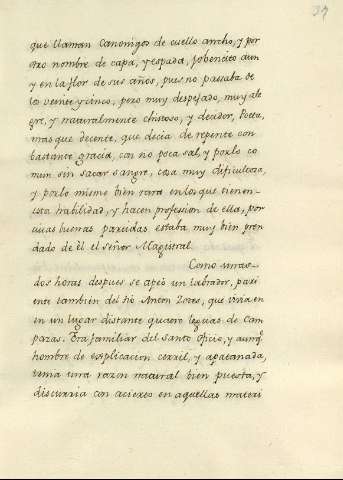 39
que llaman Canonigos de cuello ancho, y por
otro nombre de capa, y espada, Jobencito aun
y en la flor de sus años, pues no passaba de
los veinte y cinco, pero muy despejado, muy ale
gre, y naturalmente chistoso, y decidor, Poeta,
mas que decente, que decia de repente con
bastante gracia, con no poca sal, y por lo co
mun sin sacar sangre, cosa muy dificultosa,
y por lo mismo bien rara en los que tienen
esta habilidad, y hacen profession de ella, por
cuias buenas partidas estaba muy bien pren
dado de èl el señor Magistral.
Como unas
dos horas despues se apeò un labrador, pari
ente tambien del tio Anton Zotes, que vivia en
un lugar distante quatro leguas de Cam
pazas. Era familiar del santo oficio, y aunq.
hombre de explicacion cerril, y apatanada,
tenia una razon natural bien puesta, y
discurria con acierto en aquellas materi